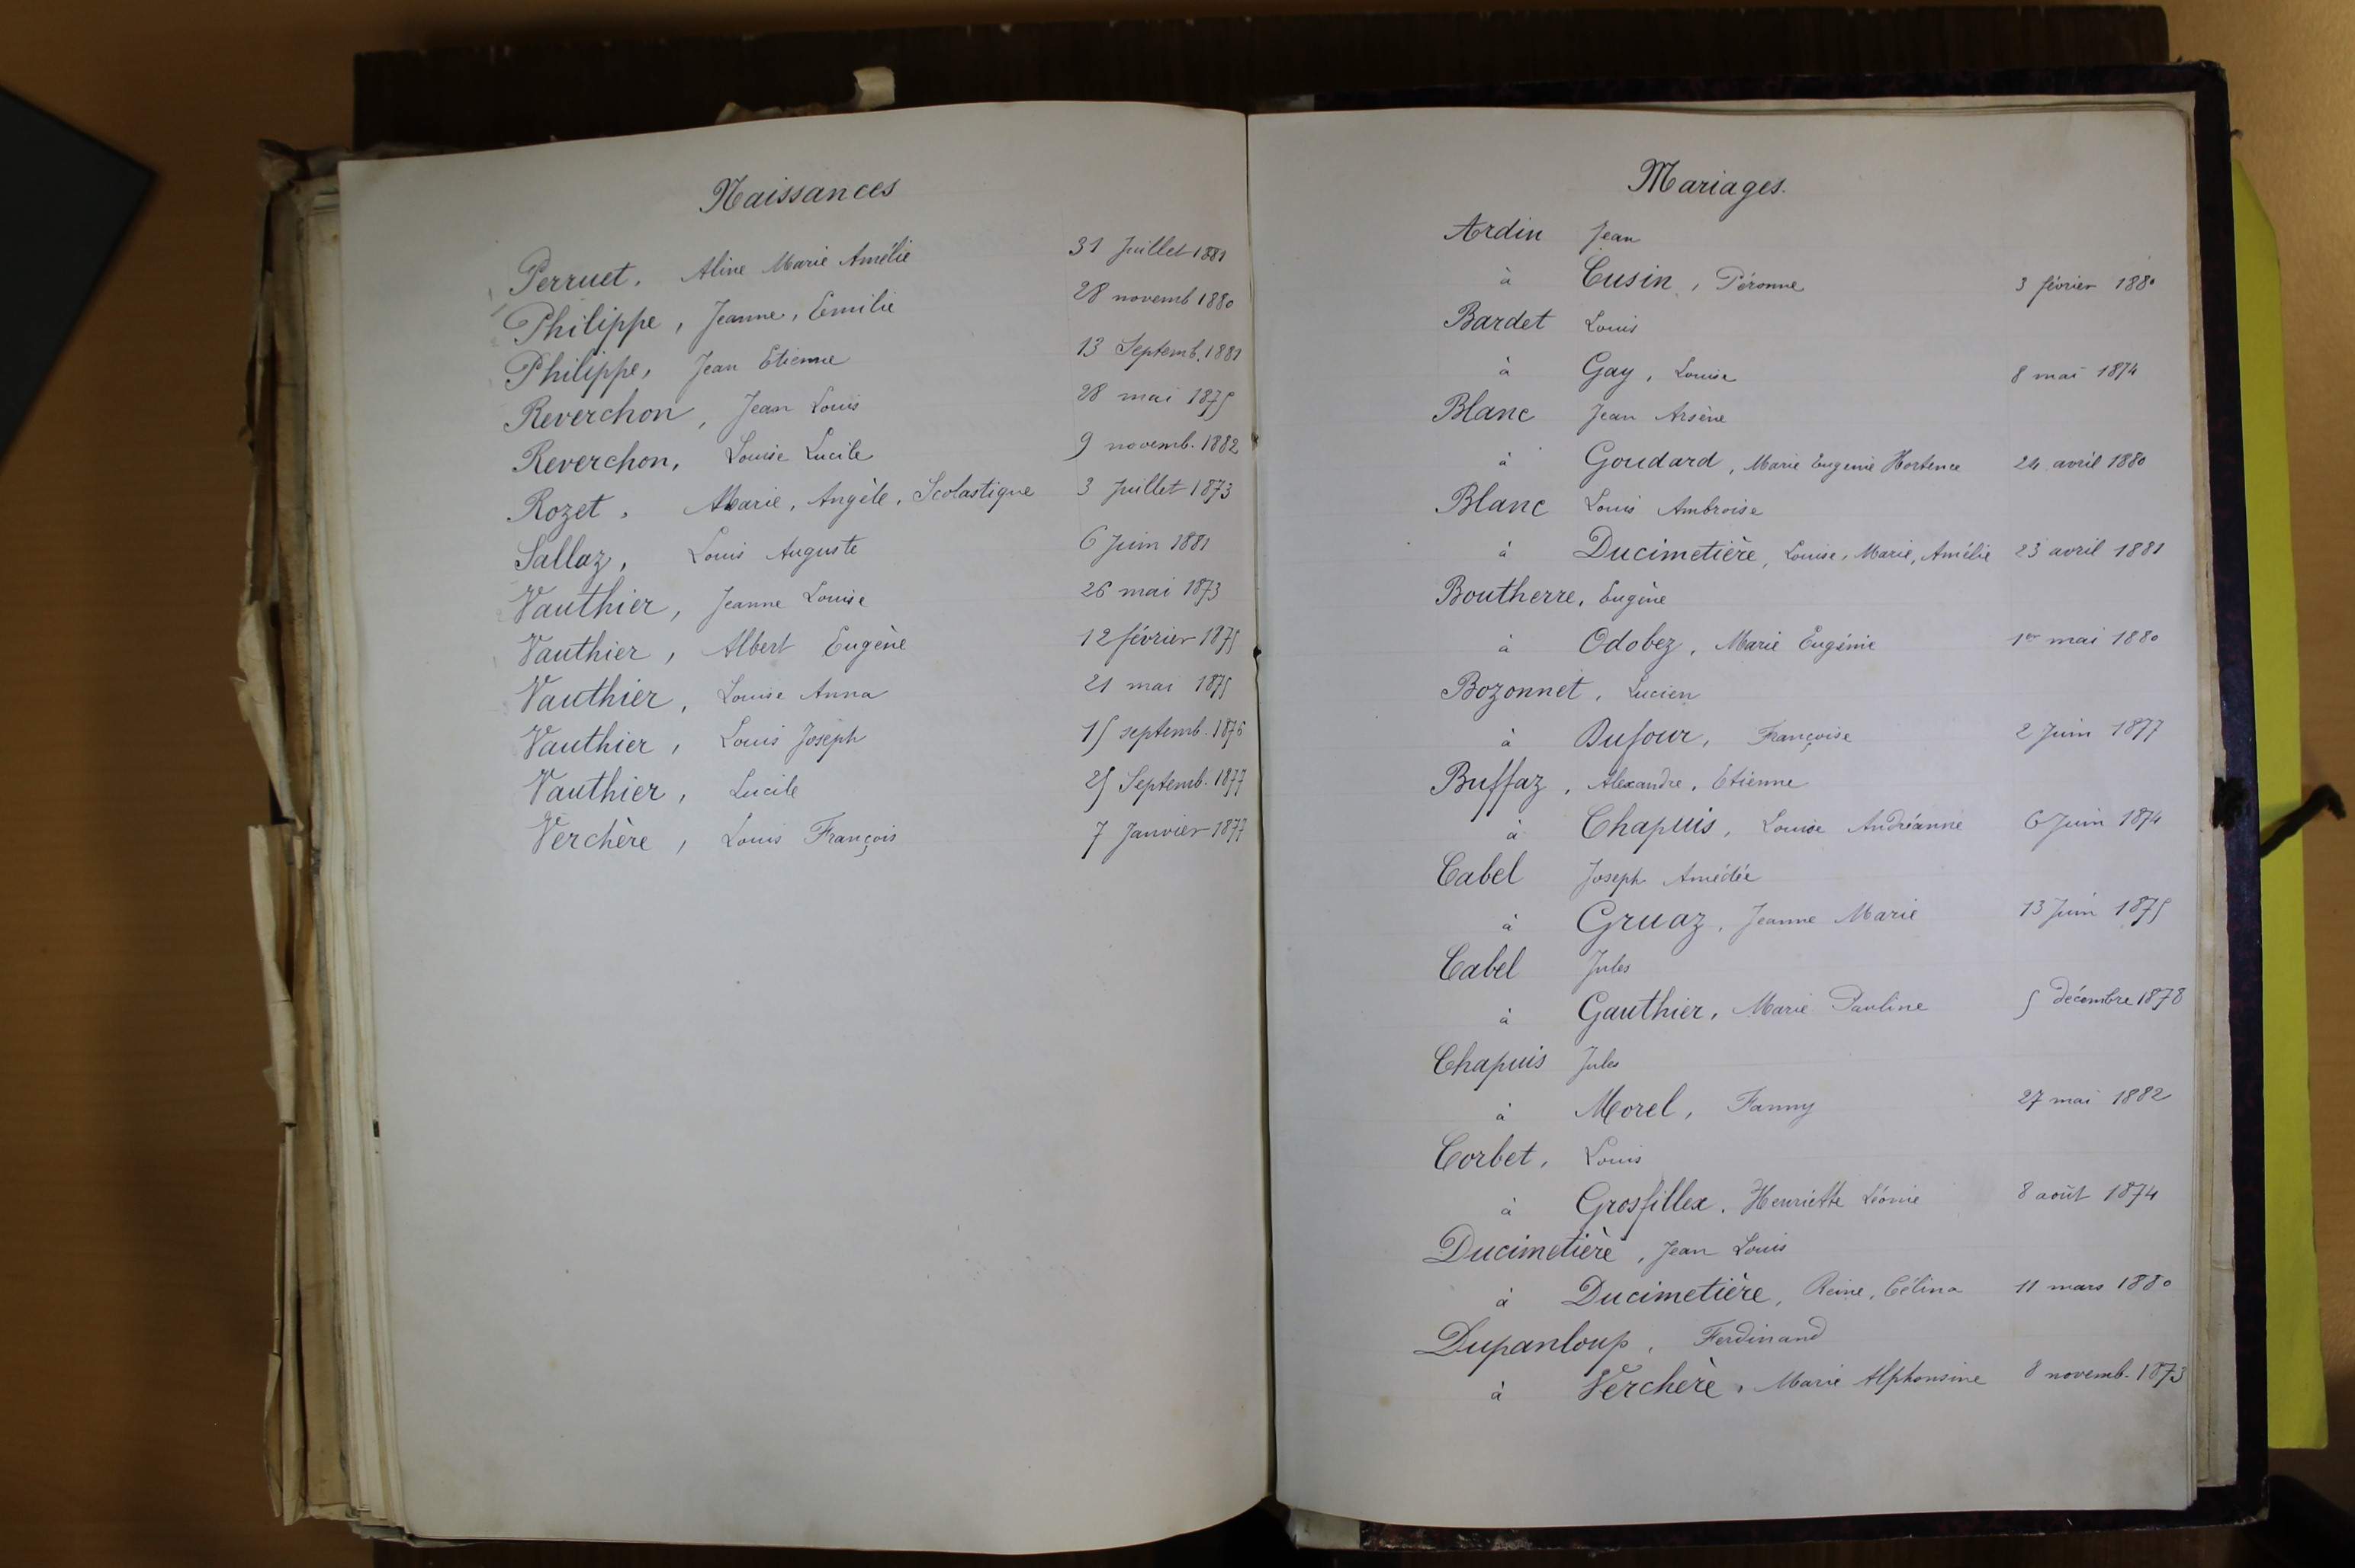 Naissances
Perruet, Aline Marie Amélie 31 Juillet 1881
Philippe, Jeanne, Emilie 28 novemb 1880
Philippe, Jean Etienne 13 Septemb. 1881
Reverchon, Jean Louis 28 mai 1875
Reverchon, Louise Lucile 9 novemb. 1882
Rozet, Marie, Angèle, Scolastique 3 Juillet 1873
Sallaz, Louis Auguste 6 Juin 1881
Vauthier, Jeanne Louise 26 mai 1873
Vauthier, Albert Eugène 12 février 1875
Vauthier, Louise Anna 21 mai 1875
Vauthier, Louis Joseph 15 septemb. 1876
Vauthier, Lucile 25 Septemb. 1877
Verchère, Louis François 7 Janvier 1877
Mariages.
Ardin Jean
à Cusin, Péronne 3 février 1880
Bardet Louis
à Gay, Louise 8 mai 1874
Blanc Jean Arsène
à Goudard, Marie Eugenie Hortence 24 avril 1880
Blanc Louis Ambroise
à Ducimetière, Louise, Marie, Amélie 23 avril 1881
Boutherre, Eugène
à Odobez, Marie Eugénie 1er mai 1880
Bozonnet, Lucien
à Dufour, Françoise 2 Juin 1877
Buffaz, Alexandre, Etienne
à Chapuis, Louise Andréanne 6 Juin 1874
Cabel Joseph Amédée
à Gruaz, Jeanne Marie 13 Juin 1875
Cabel Jules
à Gauthier, Marie Pauline 5 décembre 1878
Chapuis Jules
à Morel, Fanny 27 mai 1882
Corbet, Louis
à Grosfillex, Henriette Léonie 8 août 1874
Ducimetière, Jean Louis
à Ducimetière, Reine, Célina 11 mars 1880
Dupanloup, Ferdinand
à Verchère, Marie Alphonsine 8 novemb. 1873